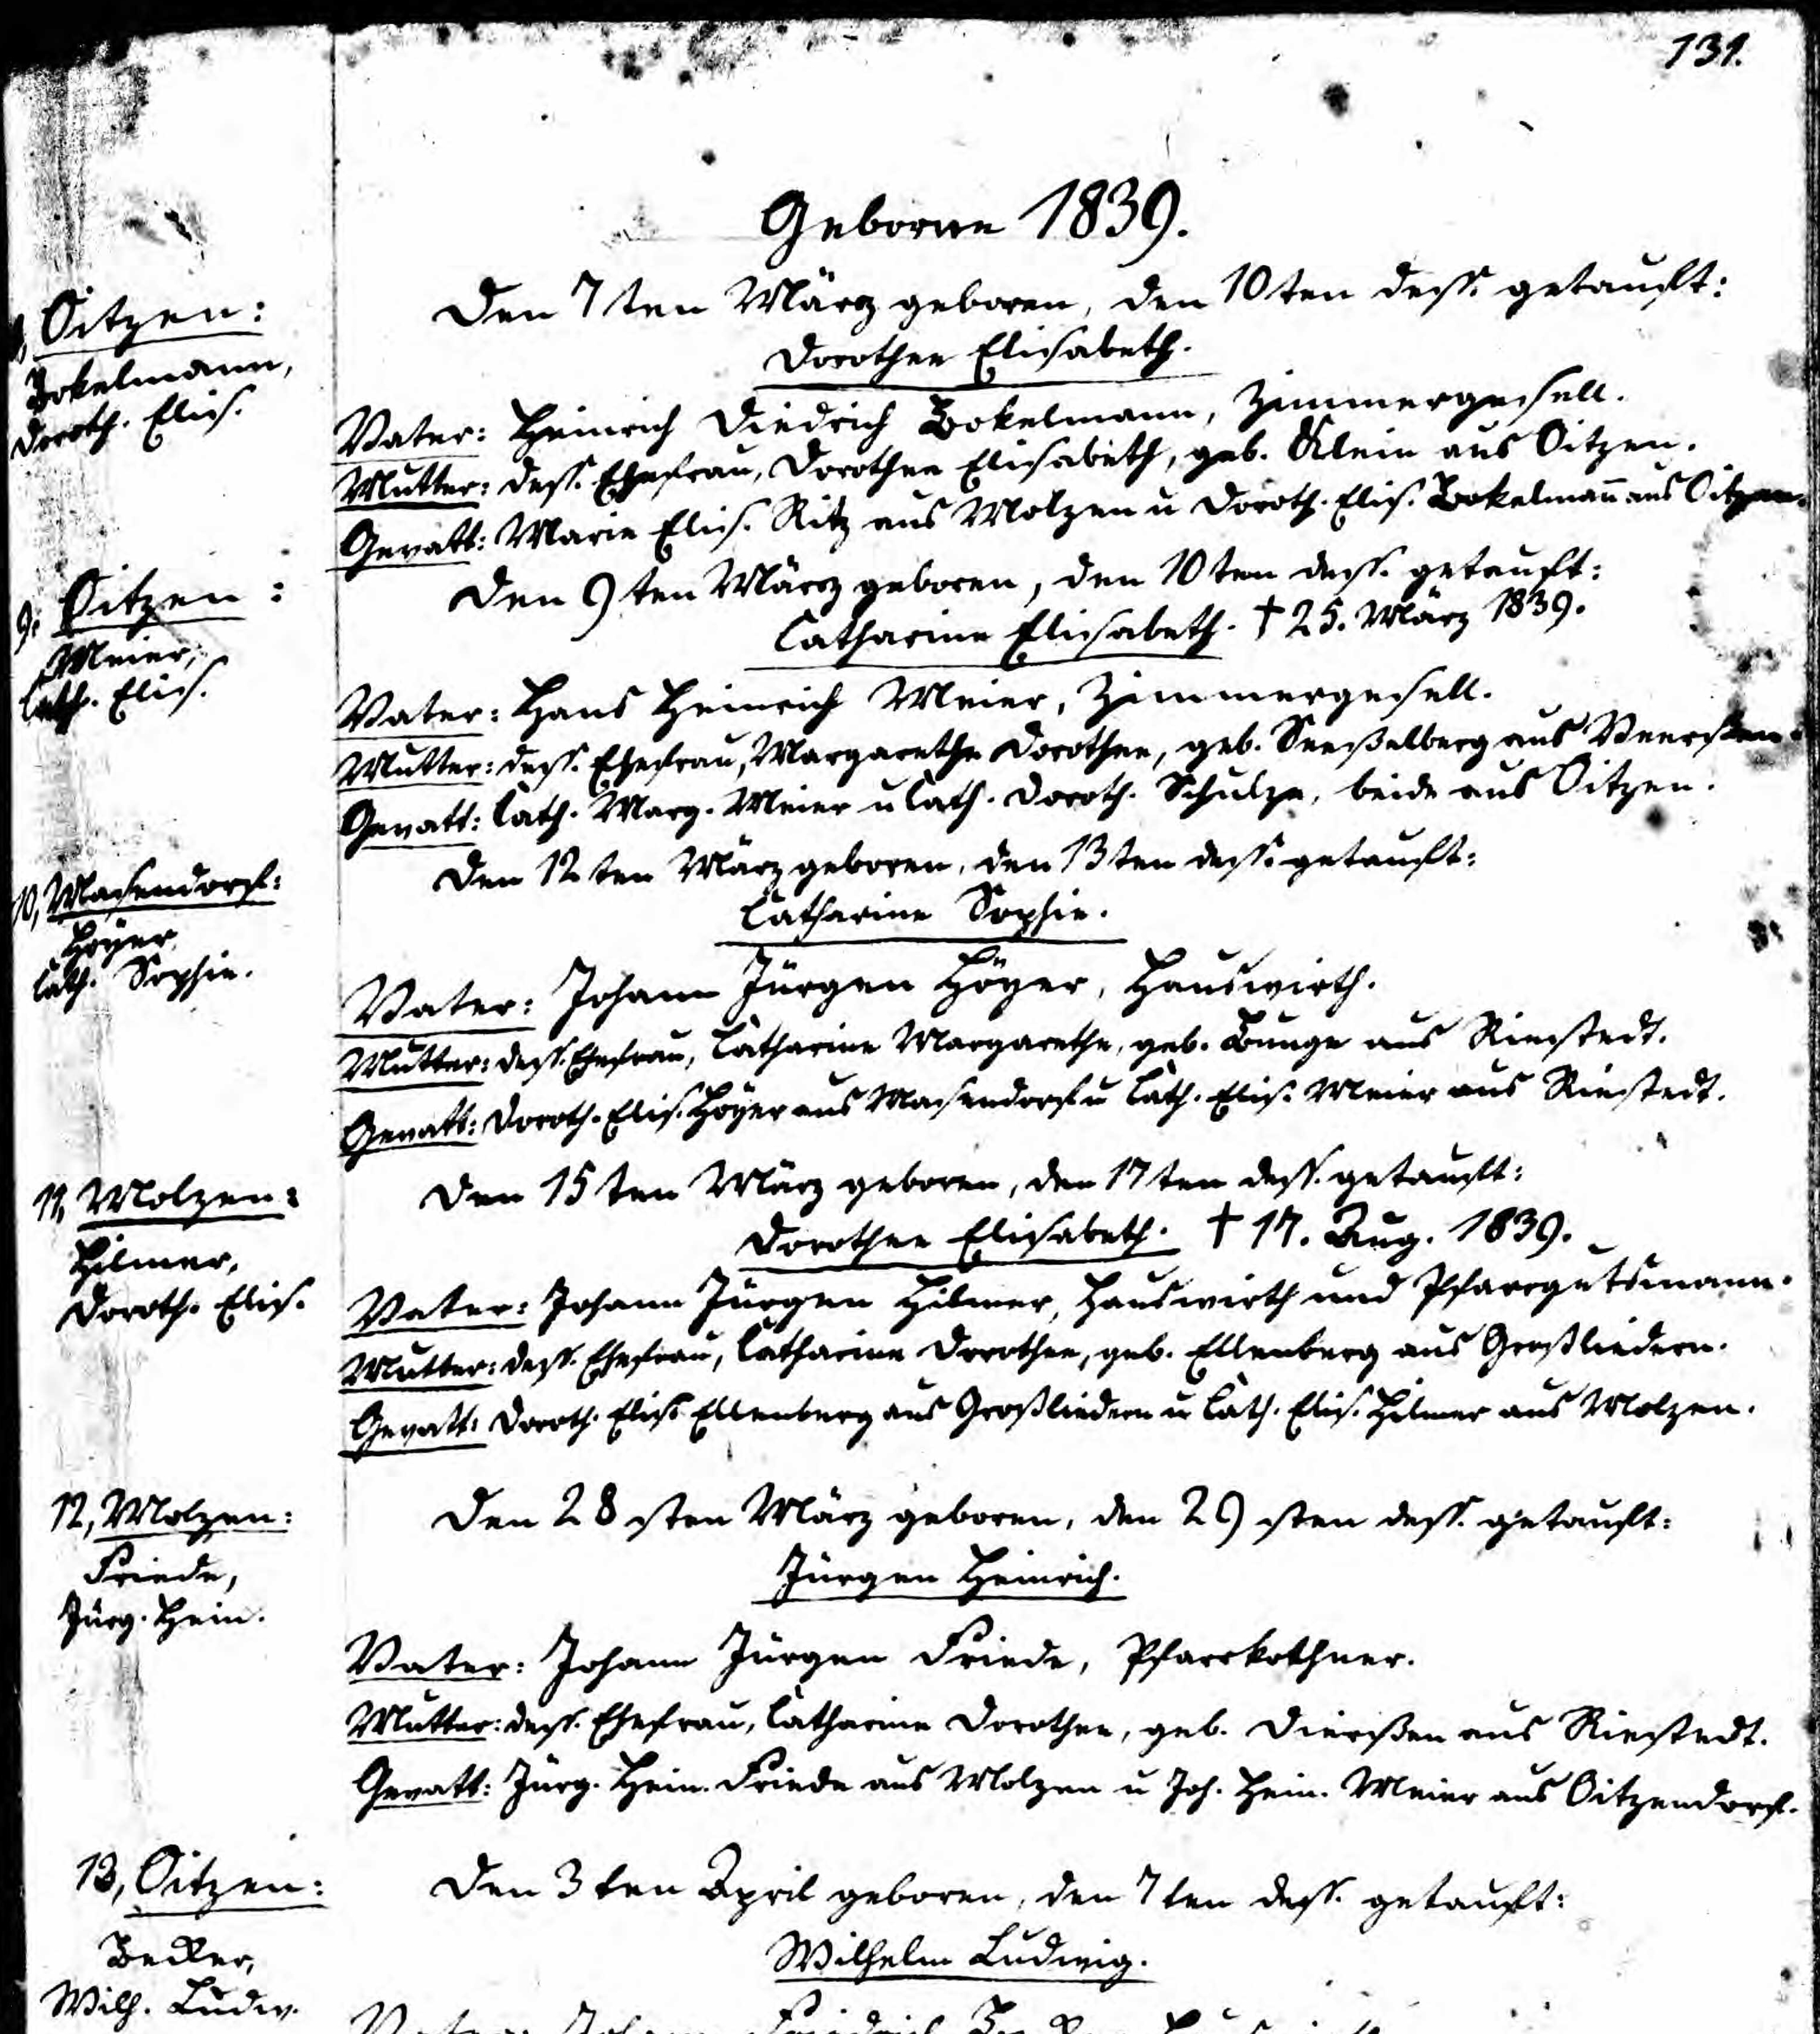 131.
Geborne 1839.
8, Oitzen:
Bokelmann,
Doroth. Elis.
Den 7ten März geboren, den 10ten dess. getauft:
Dorothee Elisabeth.
Vater: Heinrich Diedrich Bokelmann, Zimmergesell.
Mutter: dess. Ehefrau, Dorothee Elisabeth, geb. Klein aus Oitzen.
Gevatt: Marie Elis. Ritz aus Molzen u Doroth. Elis. Bokelman̄ aus Oitzen.
9, Oitzen:
Meier,
Cath. Elis.
Den 9ten März geboren, den 10ten dess. getauft:
Catharine Elisabeth. † 25. März 1839.
Vater: Hans Heinrich Meier, Zimmergesell.
Mutter: dess. Ehefrau, Margarethe Dorothee, geb. Seeßelberg aus Veerßen.
Gevatt: Cath. Marg. Meier u Cath. Doroth. Schulze, beide aus Oitzen.
10, Masendorf:
Höyer,
Cath. Sophie.
Den 12ten März geboren, den 13ten dess. getauft:
Catharine Sophie.
Vater: Johann Jürgen Höyer, Hauswirth.
Mutter: dess. Ehefrau, Catharine Margarethe, geb. Bunge aus Riestedt.
Gevatt: Doroth. Elis. Höyer aus Masendorf u Cath. Elis. Meier aus Riestedt.
11, Molzen:
Hilmer,
Doroth. Elis.
Den 15ten März geboren, den 17ten dess. getauft:
Dorothee Elisabeth. † 17. Aug. 1839.
Vater: Johann Jürgen Hilmer, Hauswirth und Pfarrgutsmann.
Mutter: dess. Ehefrau, Catharine Dorothee, geb. Ellenberg aus Großliedern.
Gevatt: Doroth. Elis. Ellenberg aus Großliedern u Cath. Elis. Hilmer aus Molzen.
12, Molzen:
Friede,
Jürg. Hein.
Den 28sten März geboren, den 29sten dess. getauft:
Jürgen Heinrich.
Vater: Johann Jürgen Friede, Pfarrkothner.
Mutter: dess. Ehefrau, Catharine Dorothee, geb. Dierßen aus Riestedt.
Gevatt: Jürg. Hein. Friede aus Molzen u Joh. Hein. Meier aus Oitzendorf.
13, Oitzen:
Becker,
Wilh. Ludw.
Den 3ten April geboren, den 7ten dess. getauft:
Wilhelm Ludwig.